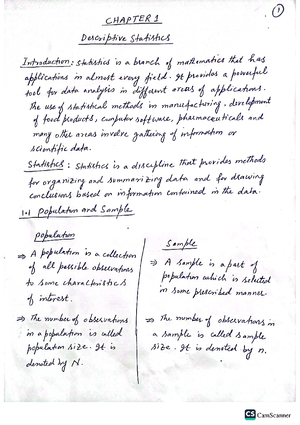 1
CHAPTER 1
Descriptive Statistics
Introduction: Statistics is a branch of mathematics that has
applications in almost every field. It provides a powerful
tool for data analysis in different areas of applications.
The use of statistical methods in manufacturing, development
of food products, computer software, pharmaceuticals and
many other areas involve gathering of information or
scientific data.
Statistics: Statistics is a discipline that provides methods
for organizing and summarizing data and for drawing
conclusions based on information contained in the data.
1.1 Population and Sample
Population
⇒ A population is a collection
of all possible observations
to some characteristics
of interest.
⇒ The number of observations
in a population is called
population size. It is
denoted by N.
Sample
⇒ A sample is a part of
population which is selected
in some prescribed manner
⇒ The number of observations in
a sample is called sample
size. It is denoted by n.
CS CamScanner